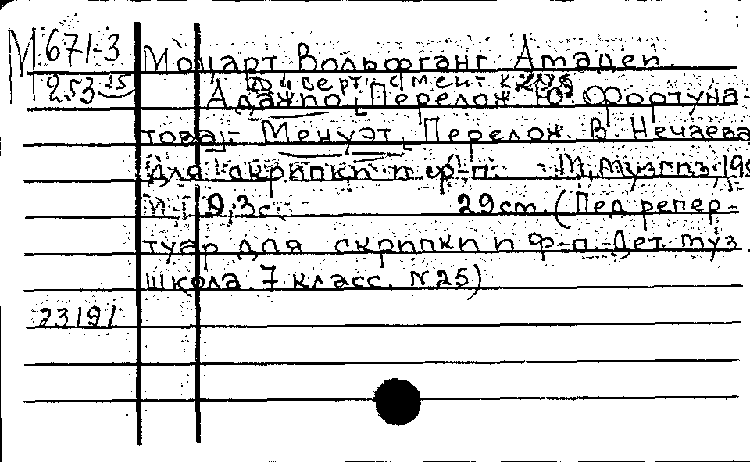 М 671-3
253
Моцарт Вольфганг Амадеп
Дивертисмент К 205
Адажпо, Перелож. Ю. Фортуна-
това.- Менуэт, Перелож. В. Нечаева
для скрппкп п ф-п. М, Музгпз, 19
9, 3 с. 29 cm. (Пед. репер-
туар для скрппкп п ф-п. Дет. муз.
школа. 7 класс. N 25)
23191